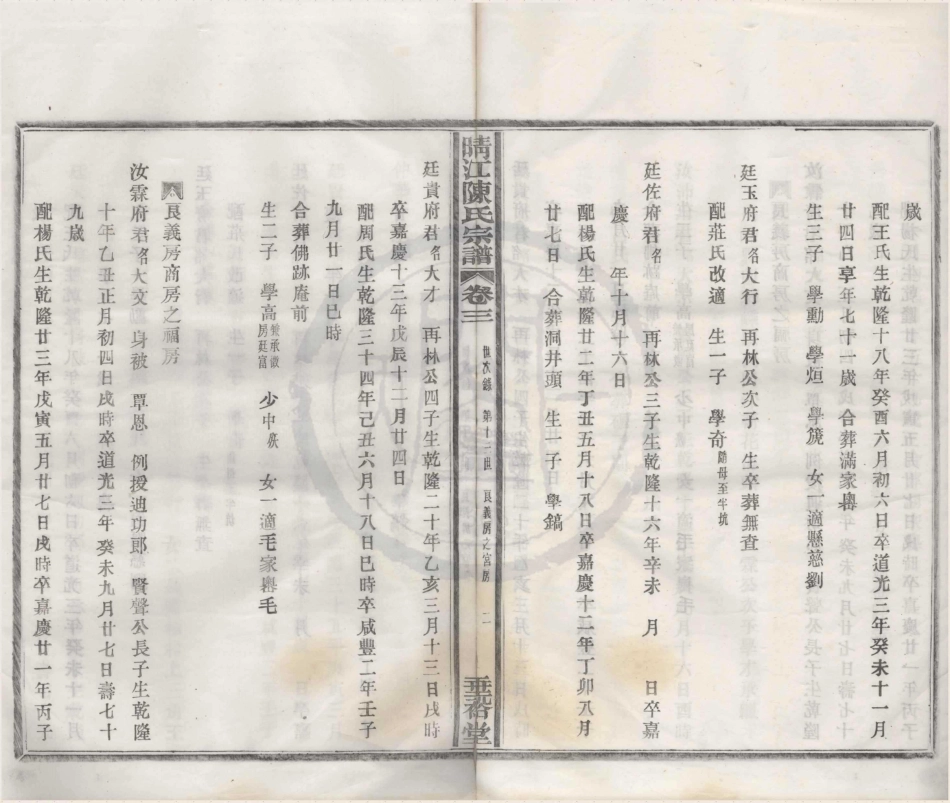 歲
配王氏生乾隆十八年癸酉六月初六日卒道光三年癸未十一月
廿四日享年七十一歲合葬滿家嶴
生三子 學動 學烜 學箎 女一適懸慈劉
廷玉府君名大行 再林公次子 生卒葬無查
配莊氏改適 生一子 學奇隨母至半坑
廷佐府君名 再林公三子生乾隆十六年辛未 月 日卒嘉
慶 年十月十六日
配楊氏生乾隆廿二年丁丑五月十八日卒嘉慶十二年丁卯八月
廿七日 合葬洞井頭 生一子 學鎬
晴江陳氏宗譜 卷三 世次錄 第十二世 艮義房之宮房 二 堂
廷貴府君名大才 再林公四子生乾隆二十年乙亥三月十三日戌時
卒嘉慶十三年戊辰十二月廿四日
配周氏生乾隆三十四年己丑六月十八日巳時卒咸豐二年壬子
九月廿一日巳時
合葬佛跡庵前
生二子 學高兼承徽房廷富 少中殀 女一適毛家嶴毛
艮義房商房之福房
汝霖府君名大文 身被 覃恩 例授迪功郎 賢聲公長子生乾隆
十年乙丑正月初四日戌時卒道光三年癸未九月廿七日壽七十
九歲
配楊氏生乾隆廿三年戊寅五月廿七日戌時卒嘉慶廿一年丙子